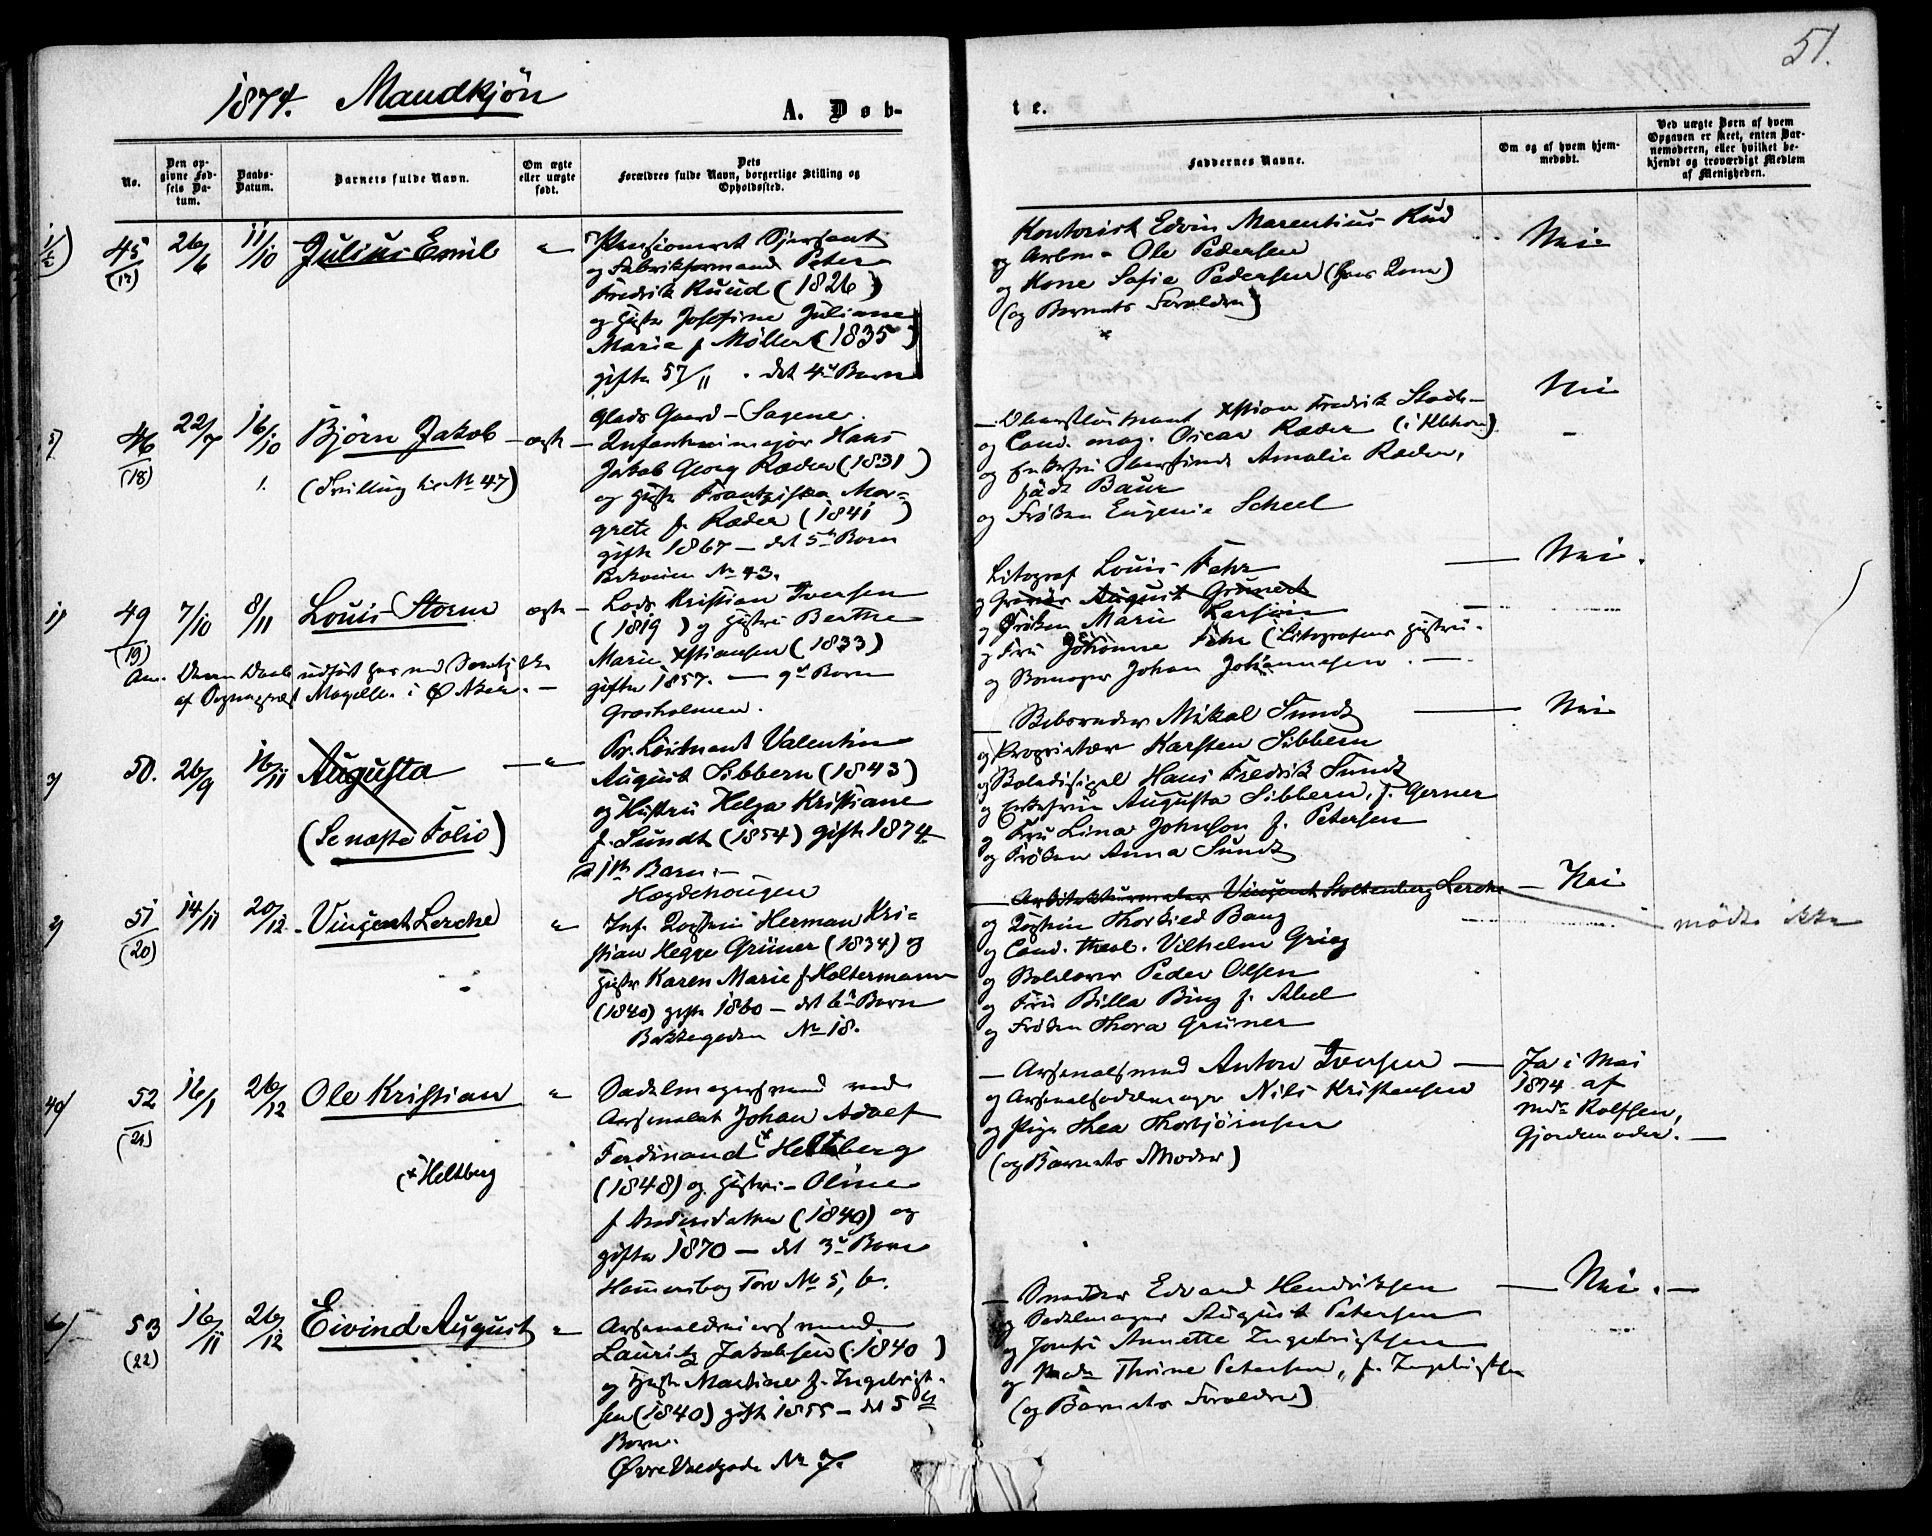 51.
1874. Mandkjön
A. Døb-
te.
No.
Den opgivne Fødsels Datum.
Daabs-Datum.
Barnets fulde Navn.
Om ægte eller uægte født.
Dets Forældres fulde Navn, borgerlige Stilling og Opholdssted.
Faddernes Navne.
Om og af hvem hjemmedøbt.
Ved uægte Børn af hvem Opgaven er skeet, enten Barnemoderen, eller hvilket bekjendt og troværdigt Medlem af Menigheden.
45 (17) 26/6 11/10 Julius Emil "
Pensioneret Sjersant
og Fabrikformand Peter
Fredrik Ruud (1826)
og Hustru Josefine Juliane
Marie f. Møller (1835)
gifte 57/11 . det 4de Barn
Kontorist Edvin Marentius Rud
og Arbm. Ole Pedersen
og Kone Sofie Pedersen
(og Barnets Forældre)
Nei
46 (18) 22/7 16/10 Bjørn Jakob — ægte —
(Tvilling til No 47)
Glads Gaard — Sagene.
Infanterimajor Hans
Jakob Georg Ræder (1831)
og Hustru Frantziska Mar=
grete f. Ræder (1841)
gifte 1867 — det 5te Barn
No 43.
— Oberstløitnant Xstian Fredrik
og Cand. mag. Oscar Ræder
og Enkefru Oberstinde Amalie Ræder,
født Baur
og Frøken Eugenie Scheel
Nei
49 (19) 7/10 8/11 Louis Storm ægte —
Anm. Denne Daab udført her med Samtykke
af Sognepræst Magelssen i Ø. Aker. —
Lods Kristian Iversen
(1819) og Hustru Berthe
Marie Xstiansen (1833)
gifte 1857. — 9de Barn
Græsholmen.
Litograf Louis Fehr
og Gravør August Grunert
og Frøken Marie Larsen
og Fru Johanne Fehr (Litografens Hustru.
og Johan Johannesen . —
Nei.
50. 26/9 16/11 Augusta — " —
(Se næste Folio)
Pr. Løitnant Valentin
August Sibbern (1843)
og Hustru Helga Kristiane
f. Sundt (1854) gifte 1874
1ste Barn. —
Hægdehougen
— Mikal Sundt
og Proprietær Karsten Sibbern
og Hans Fredrik Sundt
og Enkefrue Augusta Sibbern, f. Gerner
og Fru Lina Johnson f. Petersen
og Frøken Anna Sundt
Nei
51 (20) 14/11 20/12 Vinçent Lerche "
Inf. Kaptein Herman Kri=
stian Hegge Grüner (1834) og
Hustru Karen Marie f. Holtermann
(1840) gifte 1860 — det 6te Barn
Bakkegaden No 18.
— Arkitekturmaler Vinçent Stoltenberg Lerche
og Kaptein Thorkild Bang
og Cand. theol. Vilhelm Grieg
og Peder Olsen
og Fru Billa Bing f. Abel
og Frøken Thora Grüner
Nei
mødte ikke
52 (21) 16/1 26/12 Ole Kristian "
(* Heltberg
Sadelmagersvend ved
Arsenalet Johan Adolf
Ferdinand * Heltberg
(1848) og Hustru — Oline
f. Andersdatter (1840) og
gifte 1870 — det 3de Barn
Hammersborg Torv No 5, b.
— Arsenalsmed Anton Iversen —
og Arsenalsadelmager Nils Kristensen
og Pige Thea Thorbjörnsen
(og Barnets Moder)
Ja i Mai
1874 af
Mda Rolfsen,
Gjordemoder. —
53 (22) 16/11 26/12 Eivind August "
Lauritz Jakobsen (1840)
og Hustru Martine f. Ingebrigt-
sen (1840) gifte 1855 — det 5te
Barn.
Øvre Voldgade No 7.
— Edvard Hendriksen
og Sadelmager August Petersen
og Jomfru Annette Ingebrigtsen
og Mda Thrine Petersen, f. Ingebrigtsen
(og Barnets Forældre)
— Nei. —